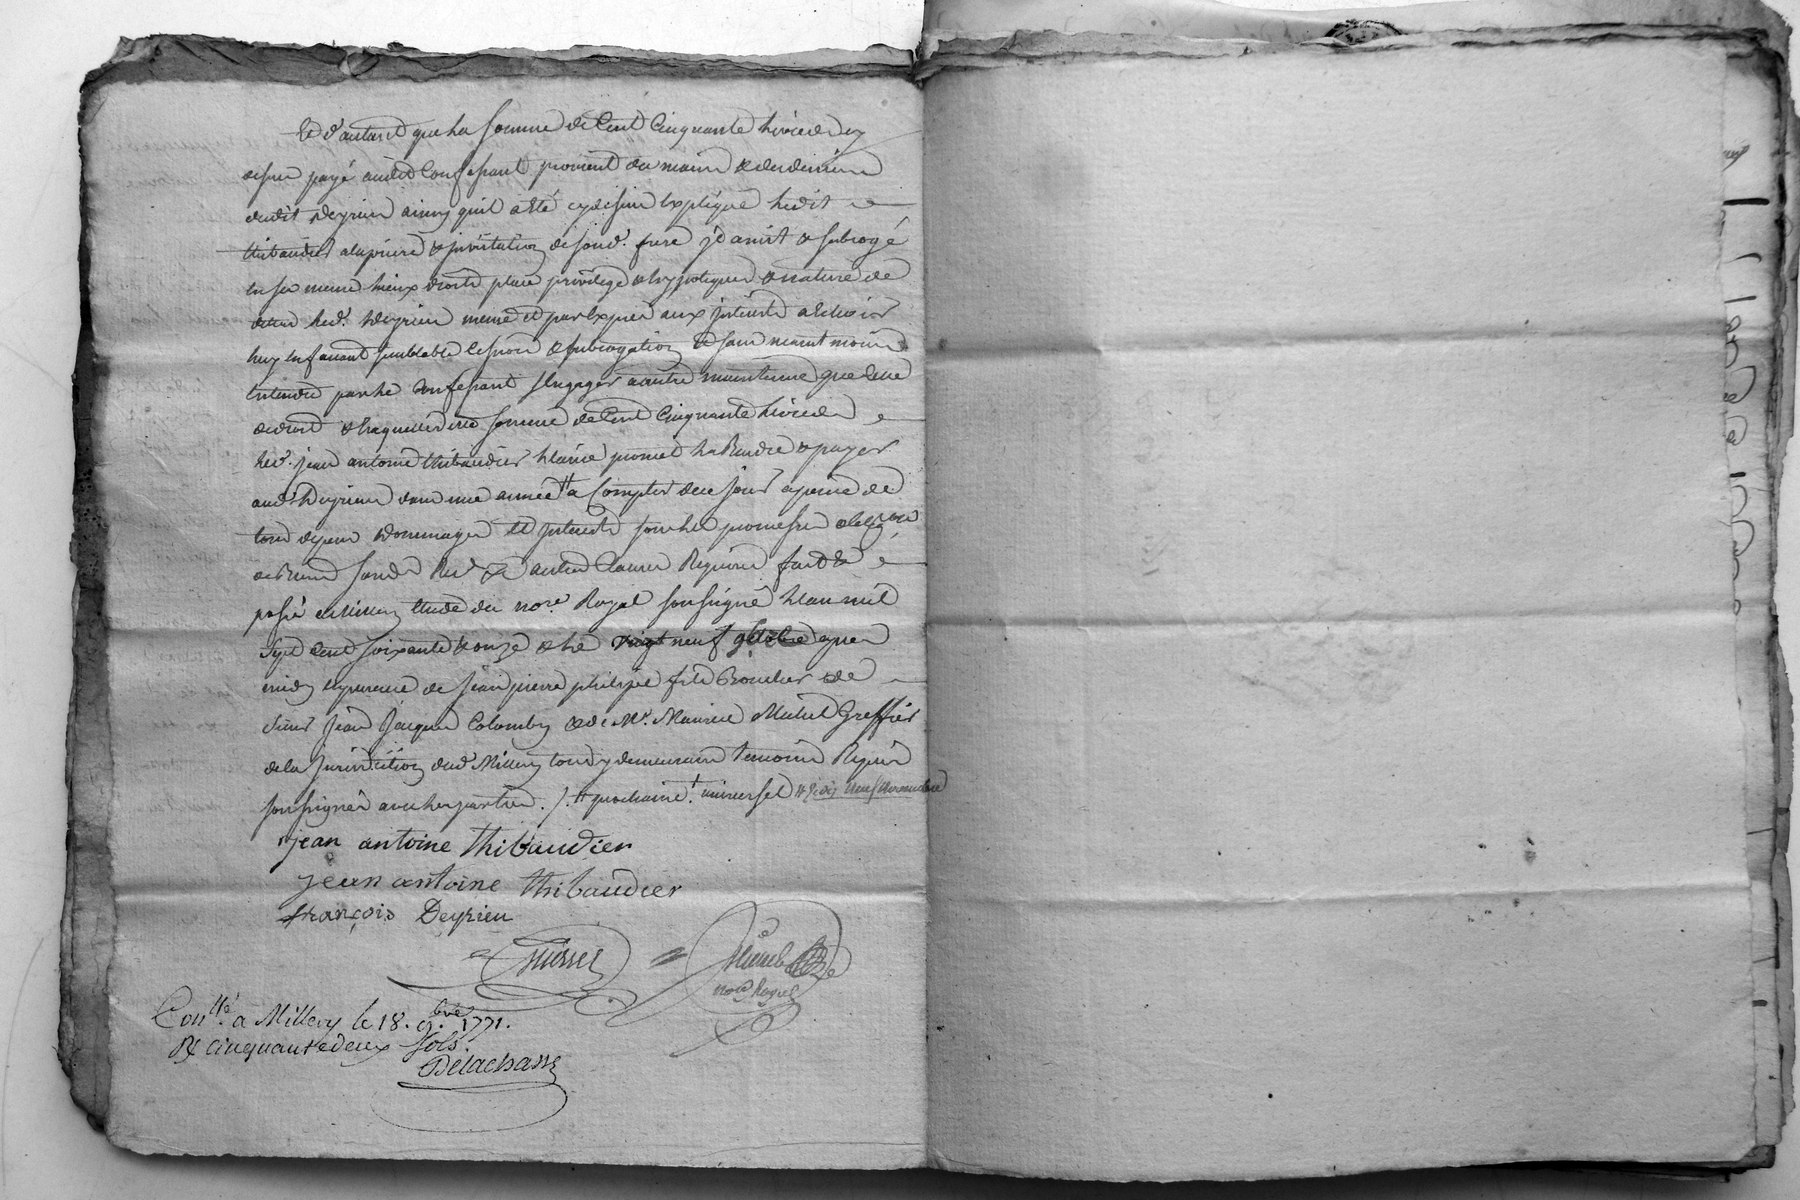 Et d'autant que la somme de Cent Cinquante livres cy
dessus payé audit Confessant provient des mains & des deniers
dudit Deyrieu ainsy quil a été cy dessus Expliqué ledit
thibaudier a la priere & invitation de sond. frere l'a mis & subrogé
en ses meme lieux droits place privilege & hypotiques & nature de
dettes led. Deyrieu meme et par Exprès aux interets
luy en faisant semblable cession & subrogation & sans neant moins
entendre par le Confessant s'engager a autre maintenue que de ses
droits & laquelle dite somme de Cent Cinquante livres
led. jean antoine thibaudier l'ainé promet la Rendre & payer
aud. Deyrieu dans une année # a Compter de ce jour a peine de
tous depens Dommages et Interets sous les promesses
& autres Clauses Requises fait &
passé a Millery etude du nore. Royal soussigné l'an mil
sept cent soixante & onze & le vingt neuf octobre apres
midy en presence de jean pierre philipe fils Boucher & de
sieur Jean Jacques Colomby & de Mr. Maurice Mutel Greffier
de la Jurisdiction dud. Millery tous y demeurants temoins Requis
soussignés avec les parties ./. # prochaine !
jean antoine thibaudier
jean antoine thibaudier
françois Deyrieu
nore Royal
Conllé. à Millery le 18. 9.bre 1771.
R cinquante deux sols.
Delachasse